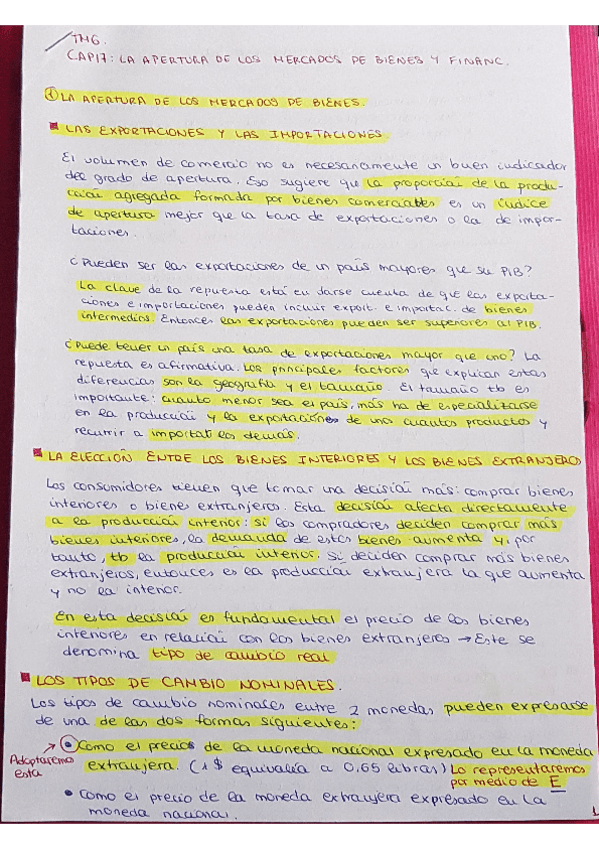 TM6.
CAP17: LA APERTURA DE LOS MERCADOS DE BIENES Y FINANC.
① LA APERTURA DE LOS MERCADOS DE BIENES.
LAS EXPORTACIONES Y LAS IMPORTACIONES.
El volumen de comercio no es necesariamente un buen indicador
del grado de apertura. Eso sugiere que la proporción de la produ-
cción agregada formada por bienes comerciables es un índice
de apertura mejor que la tasa de exportaciones o la de impor-
taciones.
¿Pueden ser las exportaciones de un país mayores que su PIB?
La clave de la repuesta está en darse cuenta de que las exporta-
ciones e importaciones pueden incluir export. e importac. de bienes
intermedios. Entonces las exportaciones pueden ser superiores al PIB.
¿Puede tener un país una tasa de exportaciones mayor que uno? La
repuesta es afirmativa. Los principales factores que explican estas
diferencias son la geografía y el tamaño. El tamaño tb es
importante: cuanto menor sea el país, más ha de especializarse
en la producción y la exportaciones de unos cuantos productos y
recurrir a importar los demás.
LA ELECCIÓN ENTRE LOS BIENES INTERIORES Y LOS BIENES EXTRANJEROS
Los consumidores tienen que tomar una decisión más: comprar bienes
interiores o bienes extranjeros. Esta decisión afecta directamente
a la producción interior: si los compradores deciden comprar más
bienes interiores, la demanda de estos bienes aumenta y, por
tanto, tb la producción interior. Si deciden comprar más bienes
extranjeros, entonces es la producción extranjera la que aumenta
y no la interior.
En esta decisión es fundamental el precio de los bienes
interiores en relación con los bienes extranjeros → Este se
denomina tipo de cambio real
LOS TIPOS DE CAMBIO NOMINALES.
Los tipos de cambio nominales entre 2 monedas pueden expresarse
de una de las dos formas siguientes:
• Como el precios de la moneda nacional expresado en la moneda
extranjera. (1$ equivalía a 0,65 libras) Lo representaremos
por medio de E
Adoptaremos
esta
• Como el precio de la moneda extranjera expresado en la
moneda nacional.
1